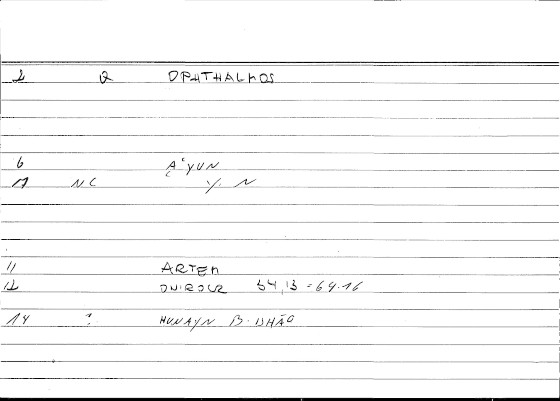 2 OPHTHALMOS
6 A'YUN
NC Y. N
11 ARTEM
12 ONIROCR 54,13 = 64.16
14 HUNAYN B. ISHĀQ